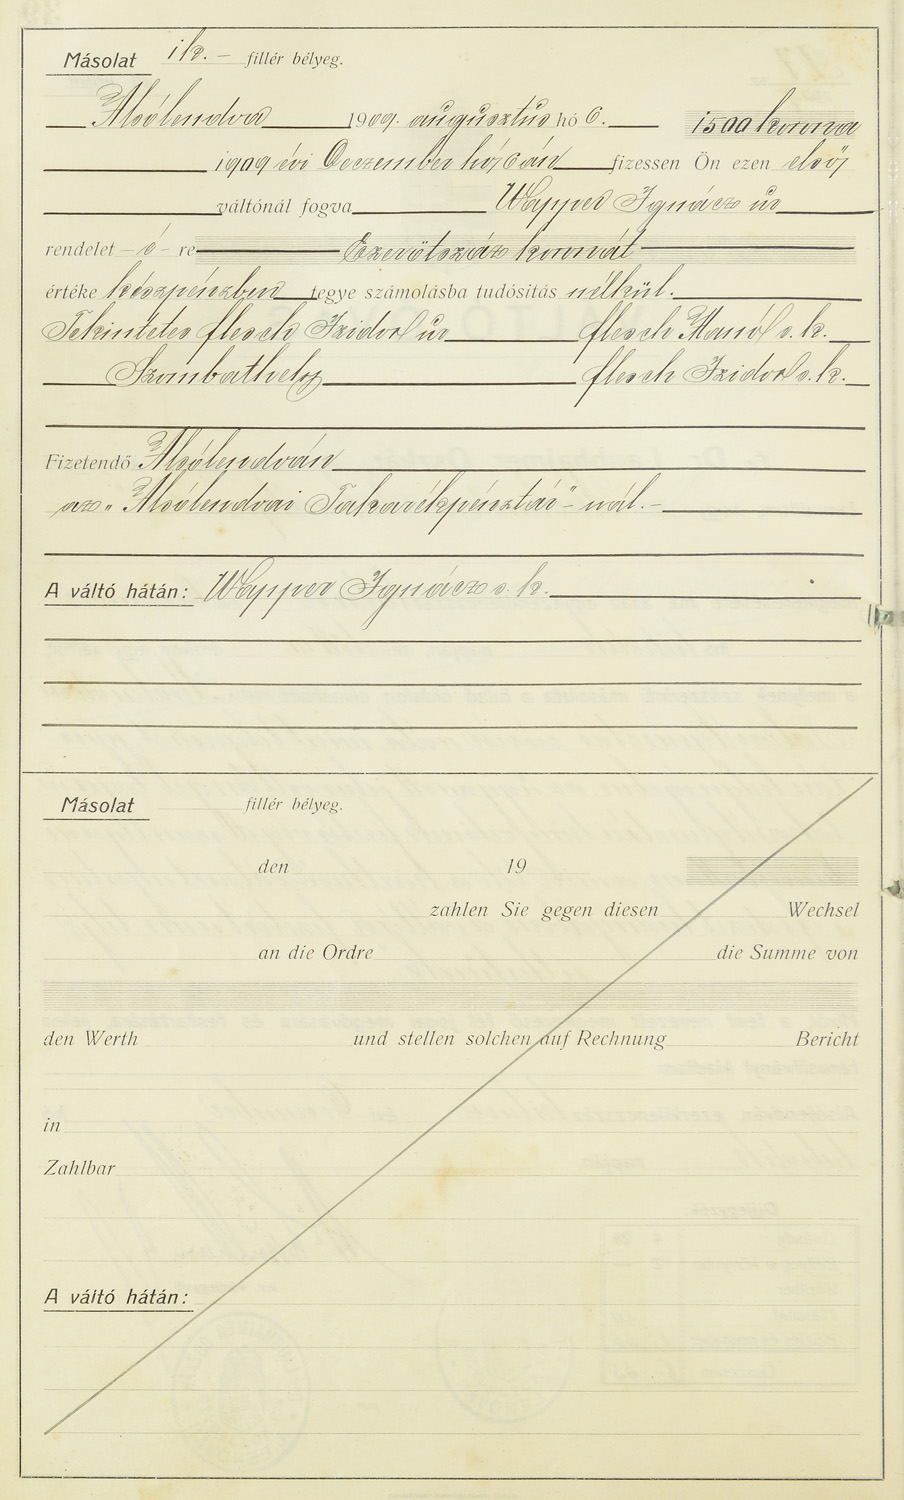 Másolat 1 k. – fillér bélyeg.
Alsólendva 1909. augusztus hó 6. 1500 korona
1909 évi Deczember hó 6án fizessen Ön ezen első
váltónál fogva Wapper Ignácz úr
rendelet – é – re Ezerötszáz koronát
értéke készpénzben tegye számolásba tudósítás nélkül.
Tekintetes flesch Izidor úr flesch Manó s. k.
Szombathely flesch Izidor s. k.
Fizetendő Alsólendván
az „Alsólendvai Takarékpénztár” – nál. –
A váltó hátán: Wapper Ignácz s. k.
Másolat fillér bélyeg.
den 19
zahlen Sie gegen diesen Wechsel
an die Ordre die Summe von
den Werth und stellen solchen auf Rechnung Bericht
in
Zahlbar
A váltó hátán: